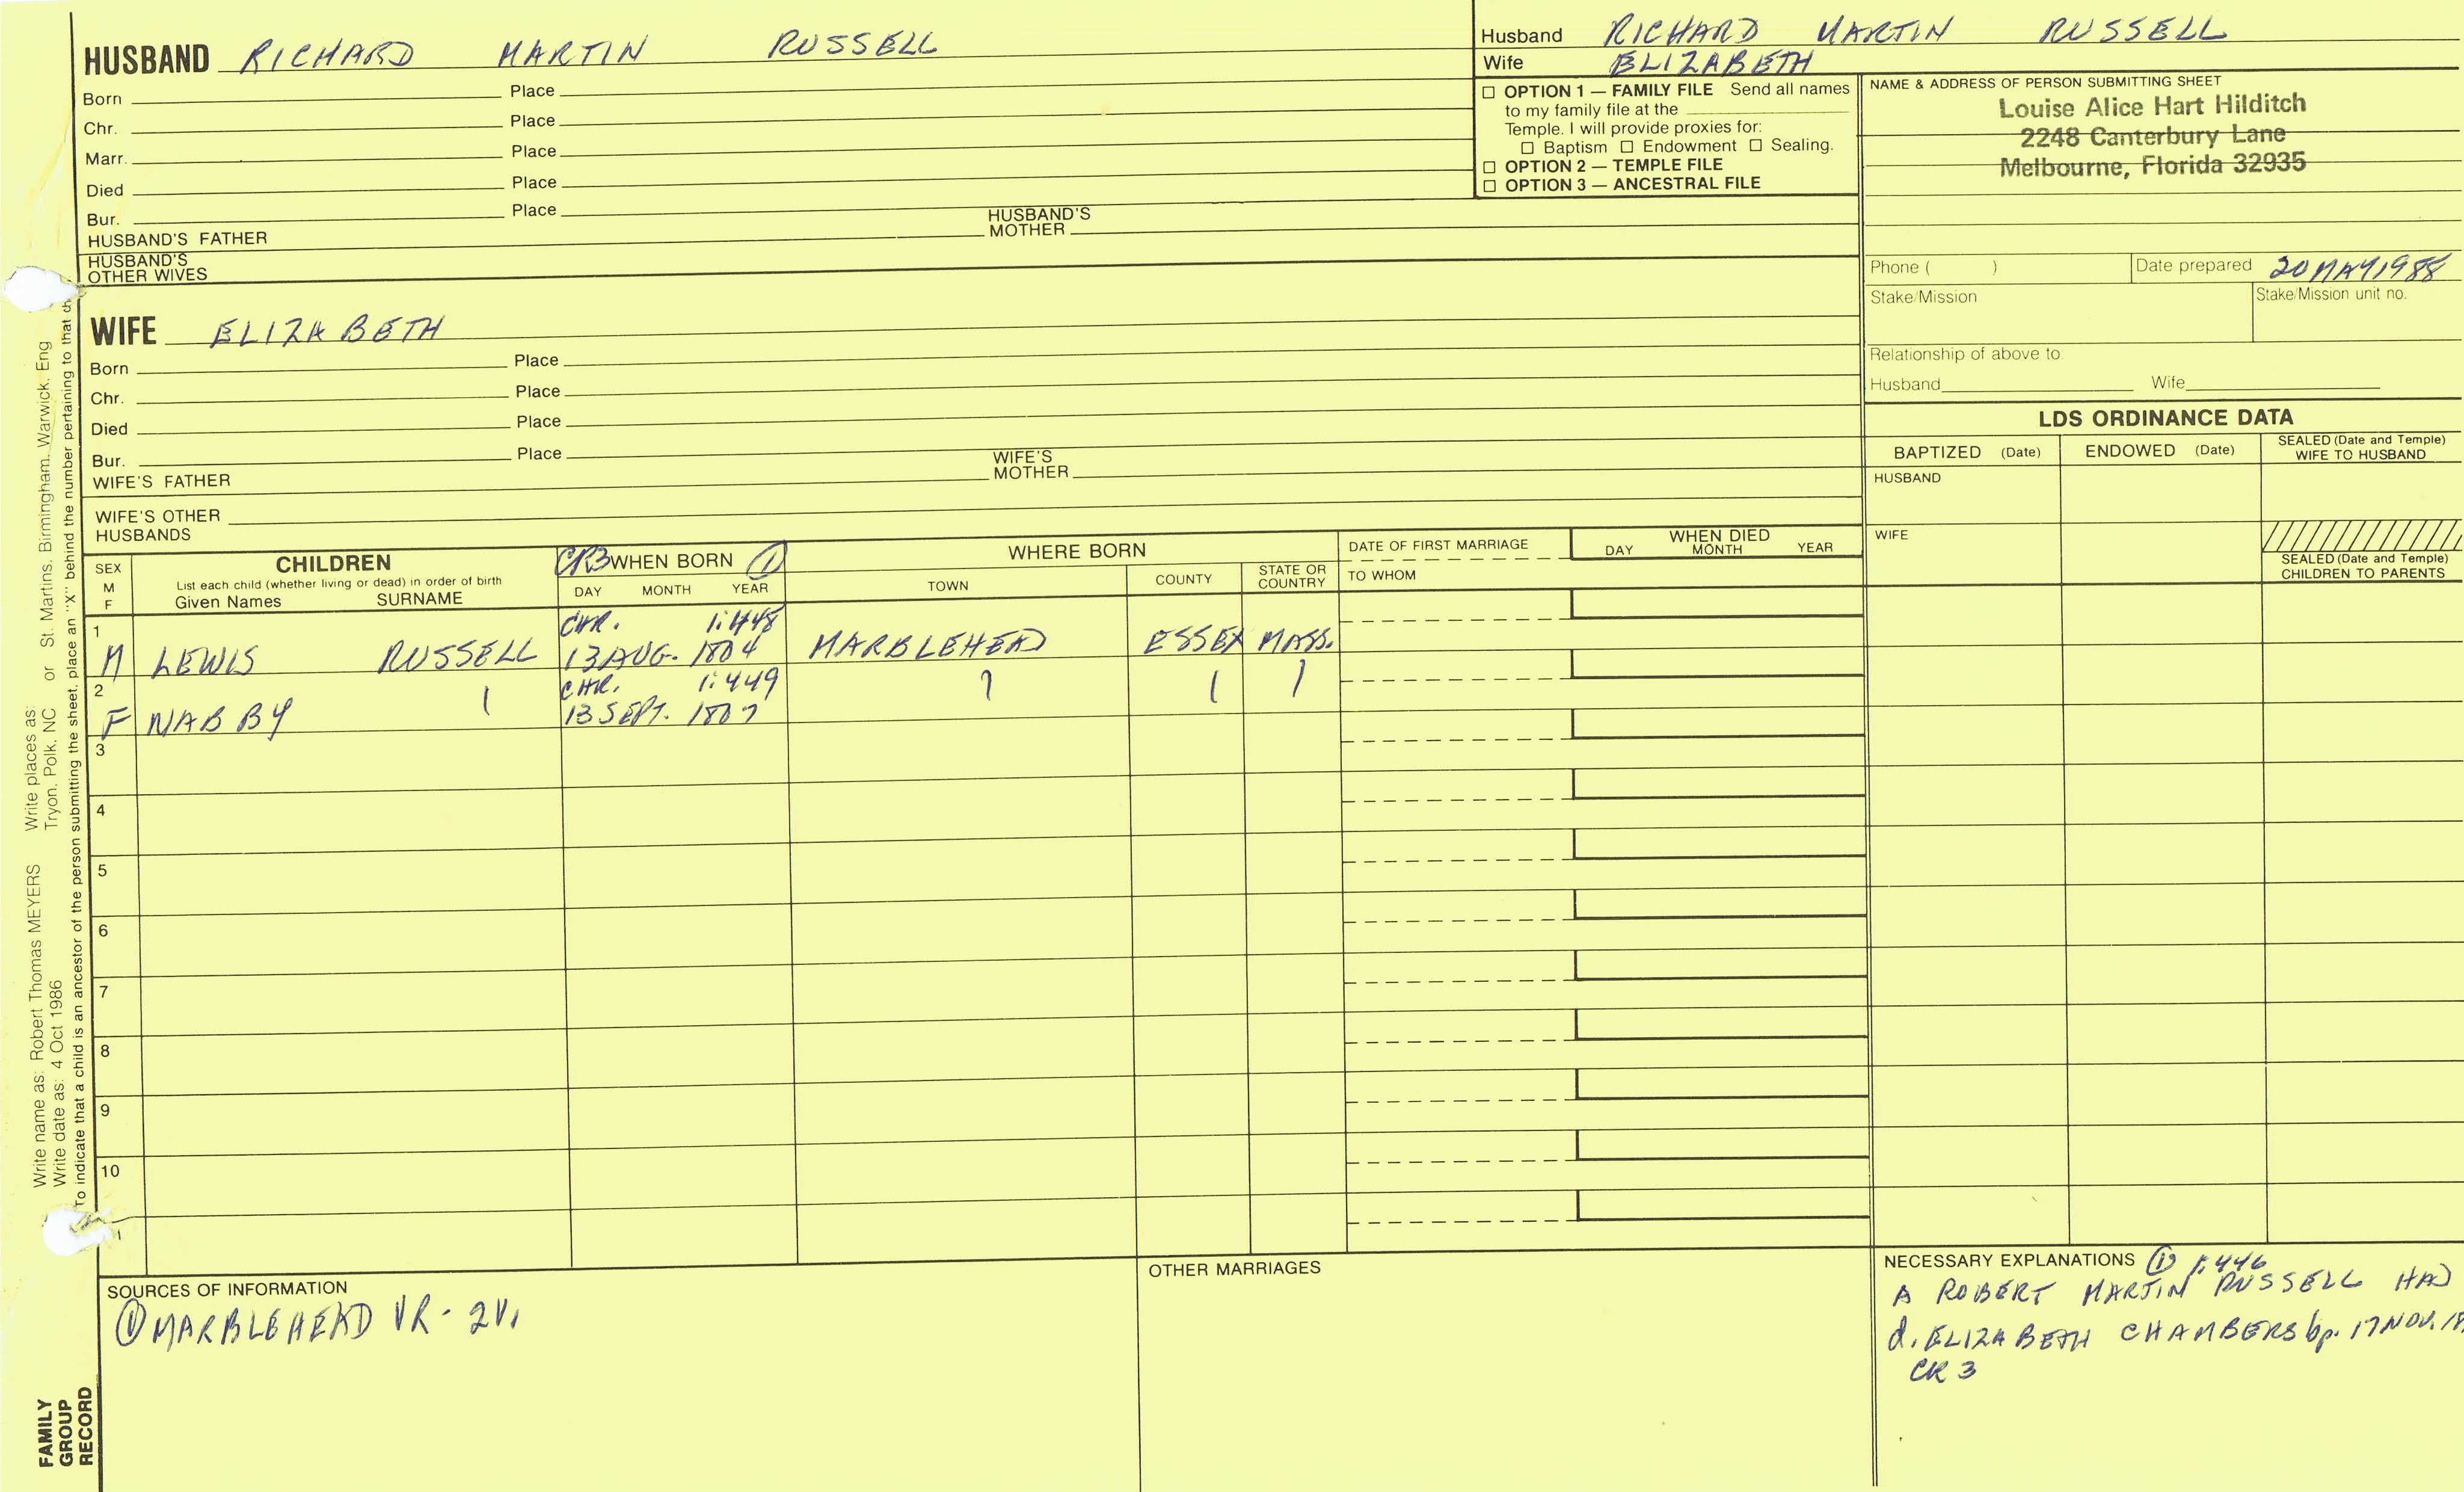 HUSBAND RICHARD MARTIN RUSSELL
Born Place
Chr. Place
Marr. Place
Died Place
Bur. Place
HUSBAND'S FATHER HUSBAND'S MOTHER
HUSBAND'S OTHER WIVES
Husband RICHARD MARTIN RUSSELL
Wife ELIZABETH
☐ OPTION 1 — FAMILY FILE Send all names
to my family file at the
Temple. I will provide proxies for:
☐ Baptism ☐ Endowment ☐ Sealing.
☐ OPTION 2 — TEMPLE FILE
☐ OPTION 3 — ANCESTRAL FILE
NAME & ADDRESS OF PERSON SUBMITTING SHEET
Louise Alice Hart Hilditch
2248 Canterbury Lane
Melbourne, Florida 32935
Phone ( ) Date prepared 20 MAY 1988
Stake/Mission Stake/Mission unit no.
Relationship of above to:
Husband Wife
WIFE ELIZABETH
Born Place
Chr. Place
Died Place
Bur. Place
WIFE'S FATHER WIFE'S MOTHER
WIFE'S OTHER HUSBANDS
LDS ORDINANCE DATA
BAPTIZED (Date) ENDOWED (Date) SEALED (Date and Temple) WIFE TO HUSBAND
HUSBAND
WIFE
SEALED (Date and Temple) CHILDREN TO PARENTS
SEX M F
CHILDREN
List each child (whether living or dead) in order of birth
Given Names SURNAME
CR3 WHEN BORN ①
DAY MONTH YEAR
WHERE BORN
TOWN COUNTY STATE OR COUNTRY
DATE OF FIRST MARRIAGE
TO WHOM
WHEN DIED
DAY MONTH YEAR
1 CHR. 1:448
M LEWIS RUSSELL 13 AUG. 1804 MARBLEHEAD ESSEX MASS.
2 CHR. 1:449
F NABBY 13 SEPT. 1807
3
4
5
6
7
8
9
10
SOURCES OF INFORMATION
① MARBLEHEAD VR - 2V.
OTHER MARRIAGES
NECESSARY EXPLANATIONS ① 1:446
A ROBERT MARTIN RUSSELL HAD
d. ELIZABETH CHAMBERS bp. 17 NOV.
CR 3
Write name as: Robert Thomas MEYERS Write places as: or St. Martins, Birmingham, Warwick, Eng
Write date as: 4 Oct 1986 Tryon, Polk, NC
To indicate that a child is an ancestor of the person submitting the sheet, place an "X" behind the number pertaining to that
FAMILY
GROUP
RECORD